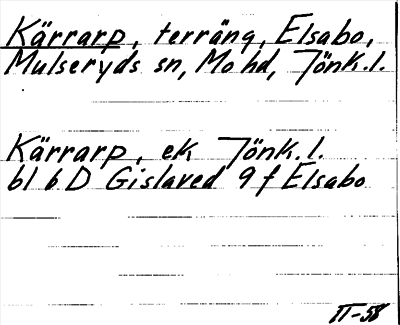 Kärrarp, terräng, Elsabo,
Mulseryds sn, Mo hd, Jönk.l.
Kärrarp, ek Jönk.l.
bl 6 D Gislaved 9 f Elsabo
II-58